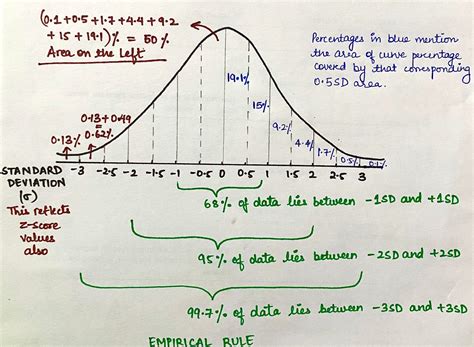 (0.1+0.5+1.7+4.4+9.2
+15+19.1)% = 50%
Area on the Left
Percentages in blue mention
the area of curve percentage
covered by that corresponding
0.5SD area.
19.1%
15%
9.2%
4.4%
1.7%
0.5%
0.1%
0.13+0.49
= 0.62%
0.13%
STANDARD
DEVIATION
(σ)
-3 -2.5 -2 -1.5 -1 -0.5 0 0.5 1 1.5 2 2.5 3
This reflects
z-score
values
also
68% of data lies between -1SD and +1SD
95% of data lies between -2SD and +2SD
99.7% of data lies between -3SD and +3SD
EMPIRICAL RULE